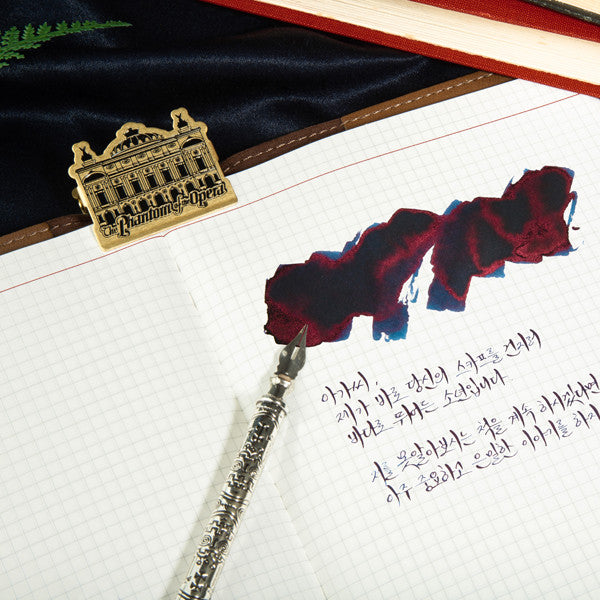 The Phantom of the Opera
아가씨,
제가 바로 당신의 스카프를 건지러
바다로 뛰어든 소년입니다.
저를 못알아보시는 척을 계속 하시겠다면
아주 중요하고 은밀한 이야기를 하지